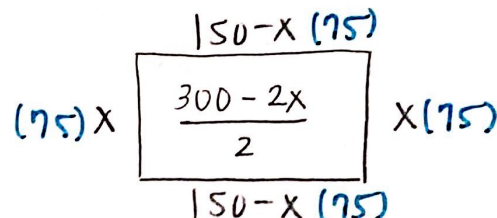 150-x (75)
(75) x 300 - 2x x (75)
2
150-x (75)